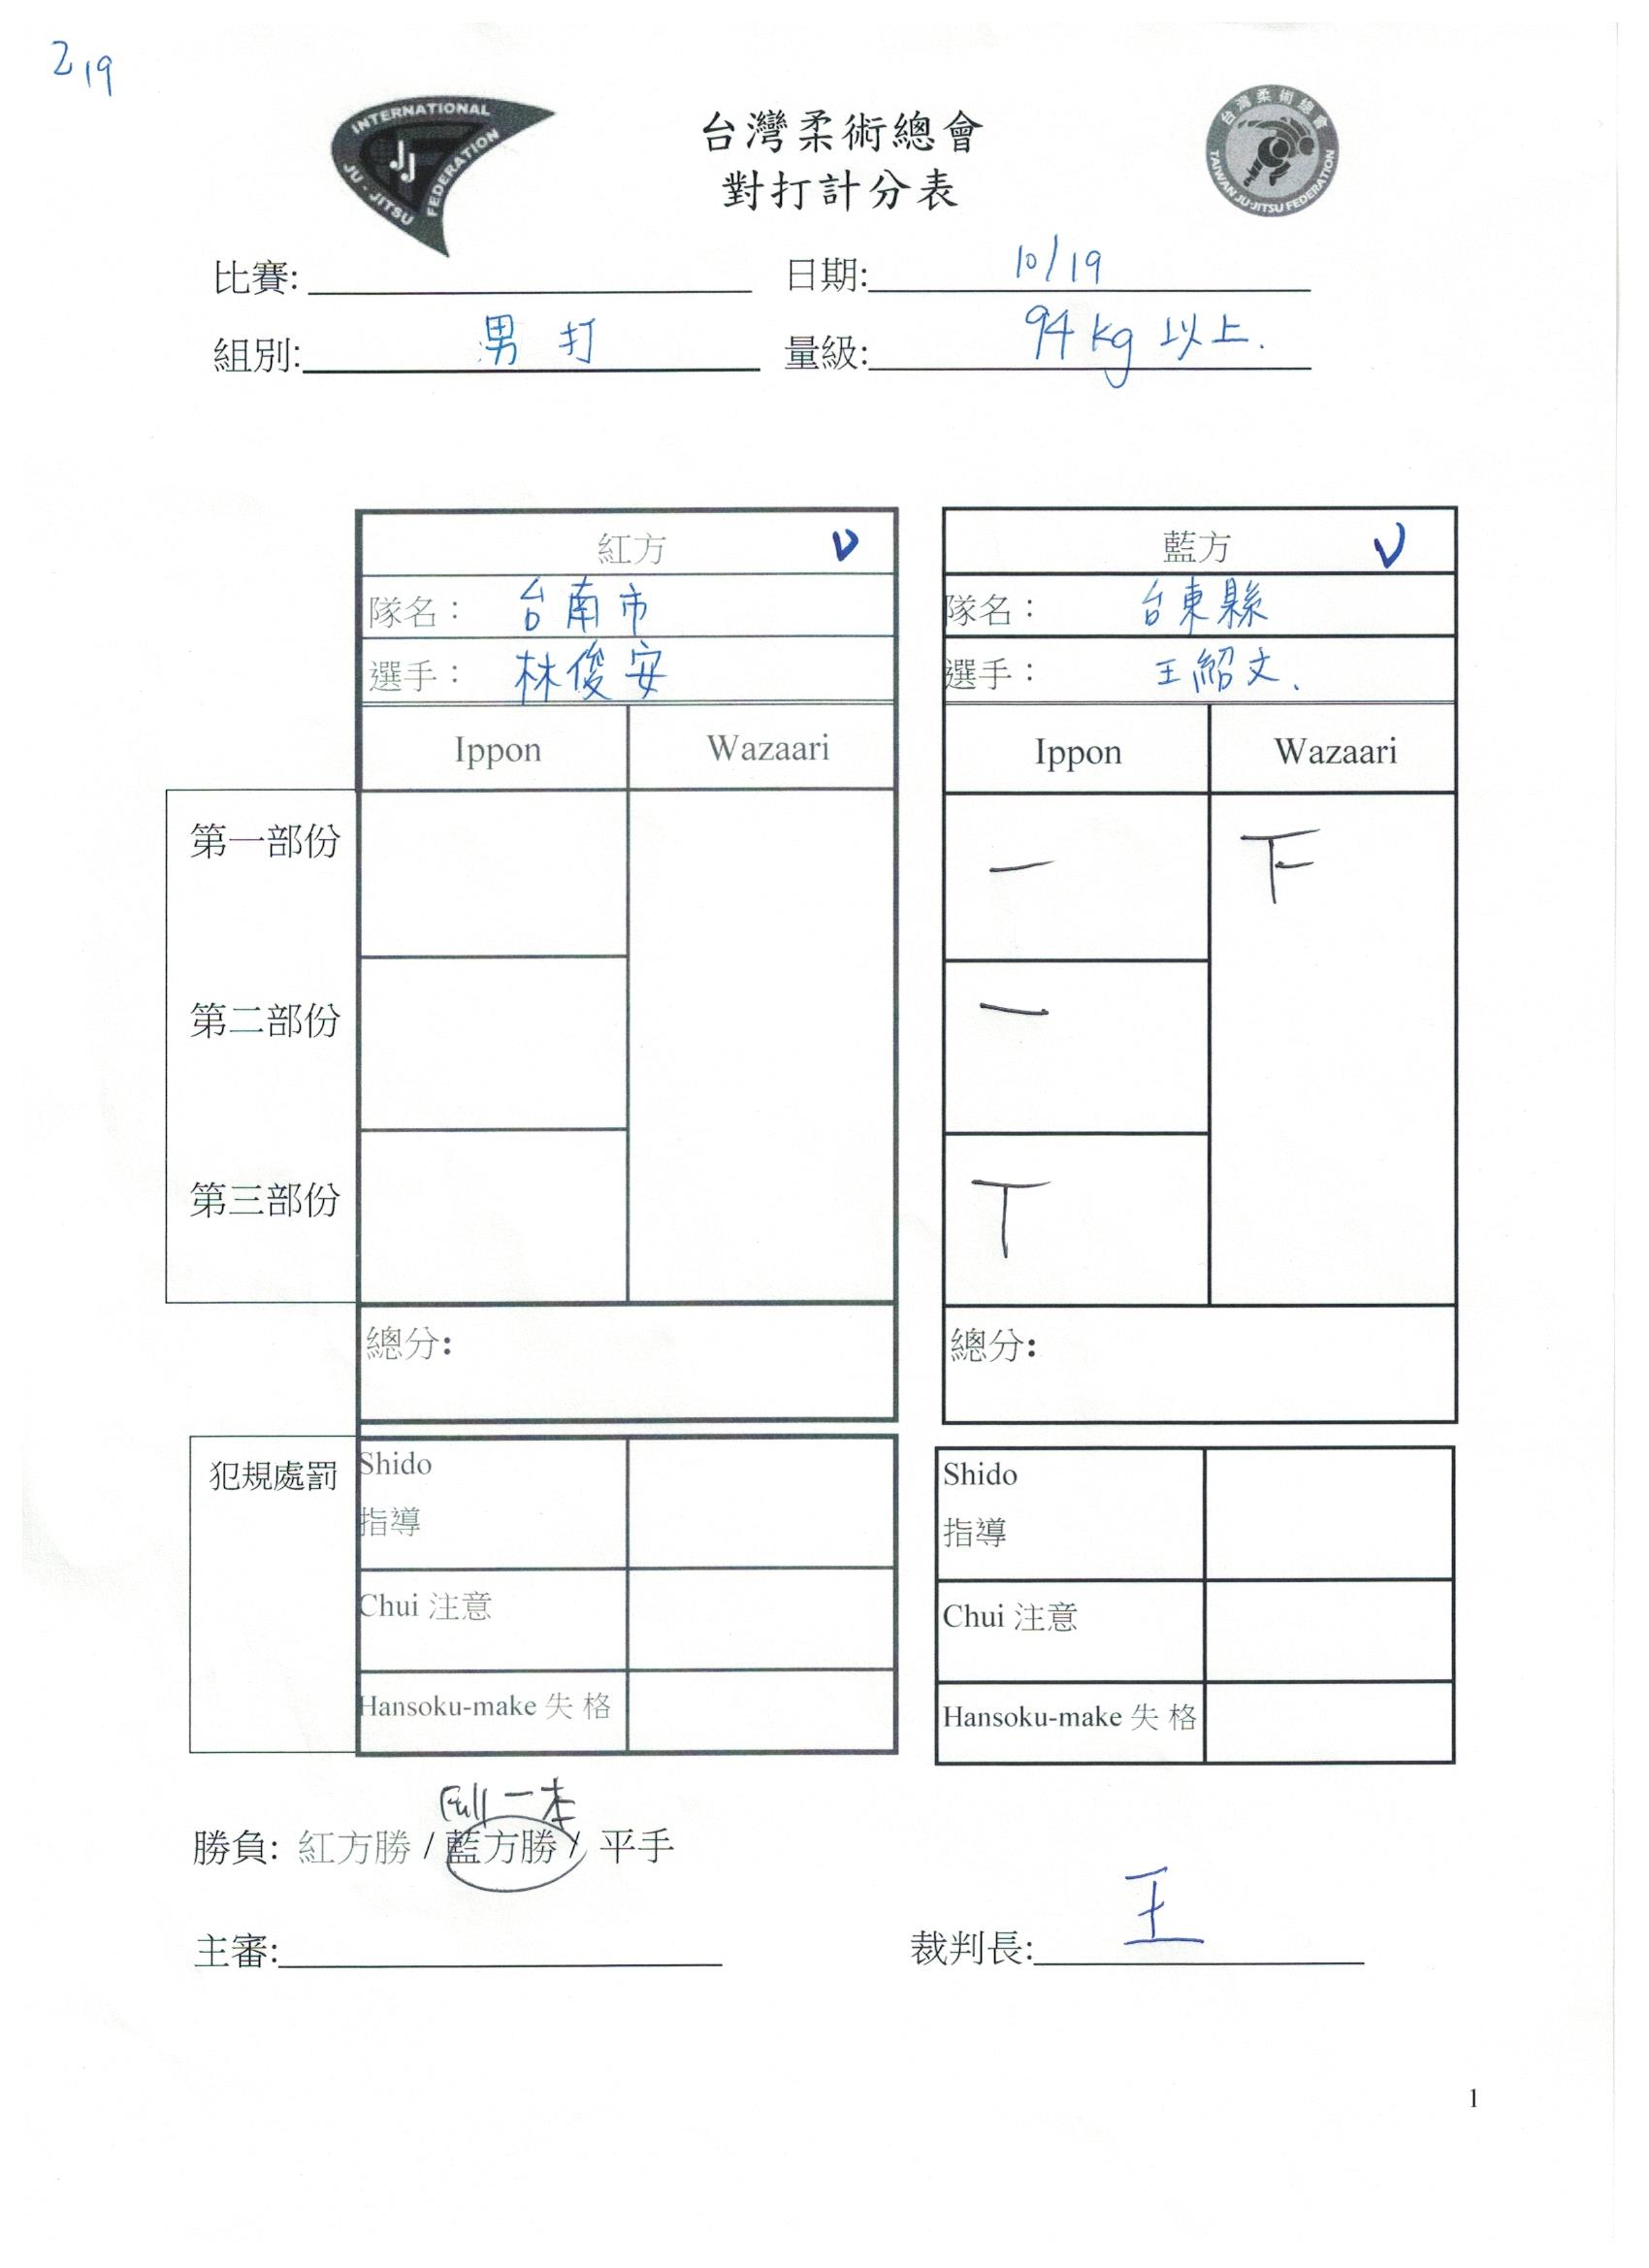 219
INTERNATIONAL JU-JITSU FEDERATION
JJ
台灣柔術總會
TAIWAN JU-JITSU FEDERATION
台灣柔術總會
對打計分表
比賽: 日期: 10/19
組別: 男打 量級: 94kg以上.
紅方 V 藍方 V
隊名： 台南市 隊名： 台東縣
選手： 林俊安 選手： 王紹文.
Ippon Wazaari Ippon Wazaari
第一部份 一 下
第二部份 一
第三部份 丅
總分: 總分:
犯規處罰 Shido Shido
指導 指導
Chui 注意 Chui 注意
Hansoku-make 失 格 Hansoku-make 失 格
Full 一本
勝負: 紅方勝 / 藍方勝 / 平手
主審: 裁判長: 王
1